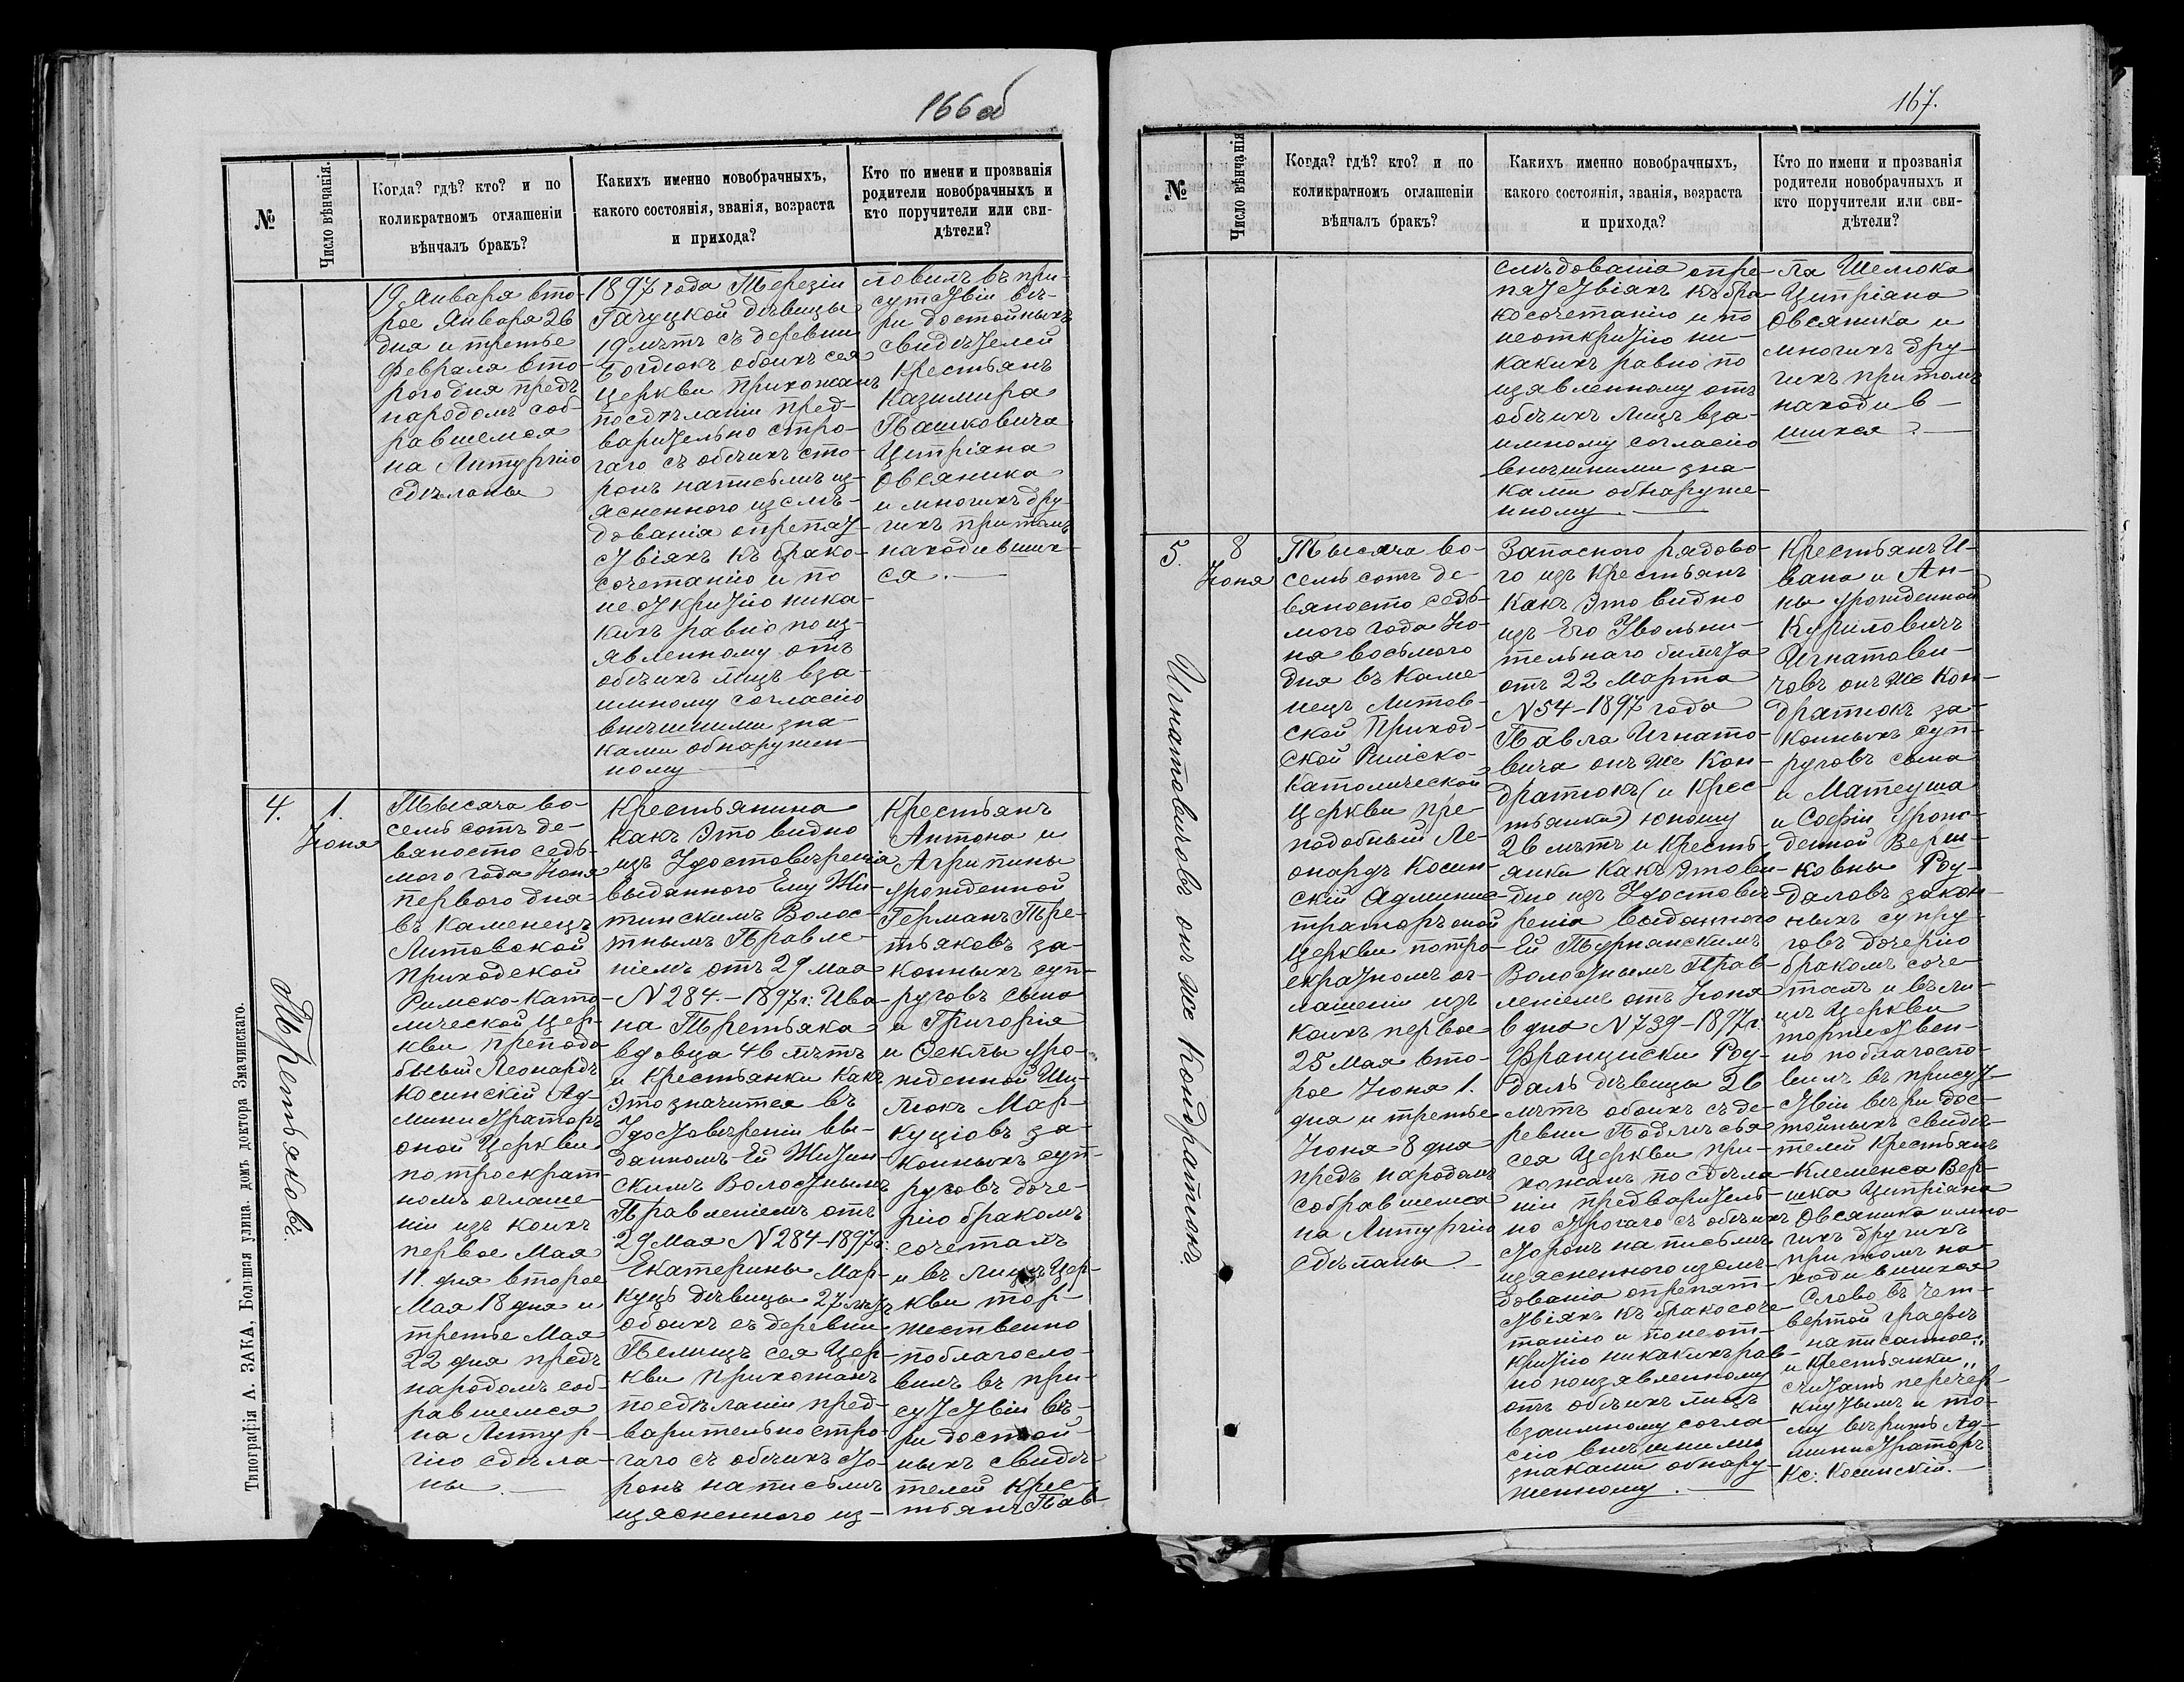 166 об
№
Число вѣнчанія.
Когда? гдѣ? кто? и по
коликратномъ оглашеніи
вѣнчалъ бракъ?
Какихъ именно новобрачныхъ,
какого состоянія, званія, возраста
и прихода?
Кто по имени и прозванія
родители новобрачныхъ и
кто поручители или сви-
дѣтели?
19 Января вто-
рое Января 26
дня и третье
Февраля вто-
рого дня предъ
народомъ соб-
равшемся
на Литургію
сдѣланы
1897 года Терезіи
Гачуцкой дѣвицы
19 лѣтъ съ деревни
Богдюкъ обоихъ сея
Церкви Прихожанъ
посдѣланіи пред-
варительно стро-
гаго съ обѣихъ сто-
ронъ написьмѣ из-
ясненного изслѣ-
дованія опрепят-
ствіяхъ къ брако-
сочетанію и по
неоткритію ника-
кихъ равно по из-
явленному отъ
обѣихъ лицъ вза-
имному согласію
внѣшними зна-
ками обнаружен-
ному
ловилъ въ при-
сутствіи вѣ-
ри достойныхъ
свидѣтелей
Крестьянъ
Казимира
Пашковича
Ципріяна
Овсяника
и многихъ дру-
гихъ притомъ
находивших-
ся.
4.
1.
Іюня
Третьяковъ.
Тысяча во-
семьсотъ де-
вяносто седь-
мого года Іюня
первого дня
въ Каменецъ
Литовской
Приходской
Римско-Като-
лической Цер-
кви преподо-
бный Леонардъ
Косинскій Ад-
министраторъ
оной Церкви
по троекрат-
номъ оглаше-
ніи изъ коихъ
первое Мая
11. дня второе
Мая 18 дня и
третье Мая
22 дня предъ
народомъ соб-
равшемся
на Литур-
гію сдѣла-
ны.
Крестьянина
какъ Это видно
изъ Удостовѣренія
выданного Ему Жи-
тинскимъ Волос-
тнымъ Правле-
ніемъ отъ 29 мая
N 284.-1897 г: Ива-
на Третьяка
вдовца 46 лѣтъ
и Крестьянки какъ
Это значится въ
Удостовѣреніи вы-
данномъ Ей Житин-
скимъ Волостнымъ
Правленіемъ отъ
29 Мая N 284-1897 г:
Екатерины Мар-
куць дѣвицы 27 лѣтъ
обоихъ съ деревни
Пелищъ сея Цер-
кви Прихожанъ
посдѣланіи пред-
варительно стро-
гаго съ обѣихъ сто-
ронъ написьмѣ
изясненного из-
Крестьянъ
Антона и
Агрипины
урожденной
Германъ Тре-
тьяковъ за-
конныхъ суп-
руговъ сына
и Григорія
и Феклы уро-
жденной Ши-
люкъ Мар-
куціовъ за-
конныхъ суп-
руговъ доче-
рію бракомъ
сочеталъ
и въ лицѣ Цер-
кви тор-
жественно
поблагосло-
вилъ въ при-
сутствіи вѣ-
ри достой-
ныхъ свидѣ-
телей Крес-
тьянъ Пав-
Типографія А. ЗАКА, Большая улица, домъ доктора Змачинскаго.
167.
№
Число вѣнчанія
Когда? гдѣ? кто? и по
коликратномъ оглашеніи
вѣнчалъ бракъ?
Какихъ именно новобрачныхъ,
какого состоянія, званія, возраста
и прихода?
Кто по имени и прозванія
родители новобрачныхъ и
кто поручители или сви-
дѣтели?
слѣдованія опре-
пятствіяхъ къ бра-
косочетанію и по
неоткритію ни-
какихъ равно по
изявленному отъ
обѣихъ лицъ вза-
имному согласію
внѣшними зна-
ками обнаруже-
нному.
ла Шелюка
Ципріана
Овсяника и
многихъ дру-
гихъ притомъ
находив-
шихся.
5.
8
Іюня
Игнатовичовъ онъ же Кондратюкъ.
Тысяча во-
семьсотъ де-
вяносто седь-
мого года Ію-
ня восьмого
дня въ Каме-
нецъ Литов-
ской Приход-
ской Римско-
Католической
Церкви пре-
подобный Ле-
онардъ Косин-
скій Админис-
траторъ оной
Церкви потро-
екратномъ ог-
лашеніи изъ
коихъ первое
25 Мая вто-
рое Іюня 1.
дня и третье
Іюня 8 дня
предъ народомъ
собравшемся
на Литургію
сдѣланы
Запасного рядово-
го изъ Крестьянъ
какъ Это видно
изъ Его Увольни-
тельнаго билѣта
отъ 22 Марта
N 54-1897 года
Павла Игнато-
вича онъ же Кон-
дратюкъ (и Крес-
тьянки) юношу
26 лѣтъ и Кресть-
янки какъ Этови-
дно изъ Удостовѣ-
ренія выданного
Ей Турнянскимъ
Волостнымъ Прав-
леніемъ отъ Іюня
6 дня N 739-1897 г.
Франциски Роу-
даль дѣвицы 26
лѣтъ обоихъ съ де-
ревни Подлѣсья
сея Церкви при-
хожанъ посдѣла-
ніи предваритель-
но строгаго съ обѣихъ
сторонъ написьмѣ
изясненного изслѣ-
дованія опрепят-
ствіяхъ къ бракосоче-
танію и понеот-
критію никакихъ рав-
но поизявленному
отъ обѣихъ лицъ
взаимному согла-
сію внѣшними
знаками обнару-
женному.
Крестьянъ И-
вана и Ан-
ны урожденной
Куриловичъ
Игнатови-
човъ онъ же Кон-
дратюкъ за-
конныхъ суп-
руговъ сына
и Матеуша
и Софіи урож-
денной Верш-
ковны Роу-
даловъ закон-
ныхъ супру-
говъ дочерію
бракомъ соче-
талъ и въ ли-
цѣ Церкви
торжествен-
но поблагосло-
вилъ въ присут-
ствіи вѣри дос-
тойныхъ свидѣ-
телей Крестьянъ
Клеменса Вер-
шка Ципріана
Овсяника и мно-
гихъ другихъ
притомъ на-
ходившихся
Слово въ чет-
вертой графѣ
написанное
„и Крестьянки„
считать перечер-
кнутымъ и то-
му вѣрить Ад-
министраторъ
Кс: Косинскій.